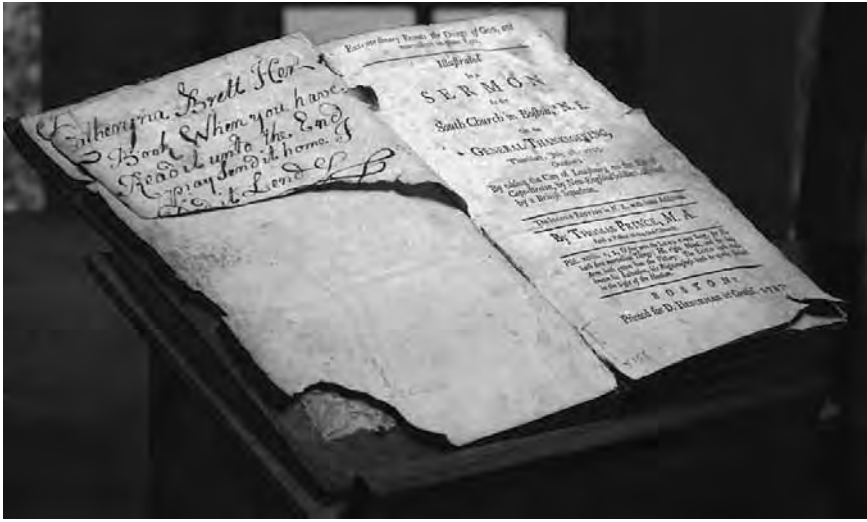 Catheryna Brett Her
Book When you have
Read it unto the End
pray send it home I
did it Lend
Extraordinary Events the Doings of God, and
Illustrated
In a
SERMON
At the
South Church in Boston, N. E.
On the
GENERAL THANKSGIVING,
Thursday,
By taking the City of Louisbourg, on the Isle of
Cape-Breton, by New-England Soldiers, assisted
by a British Squadron.
By THOMAS PRINCE, M. A.
BOSTON:
Printed for D. HENCHMAN in Cornhil. 1747